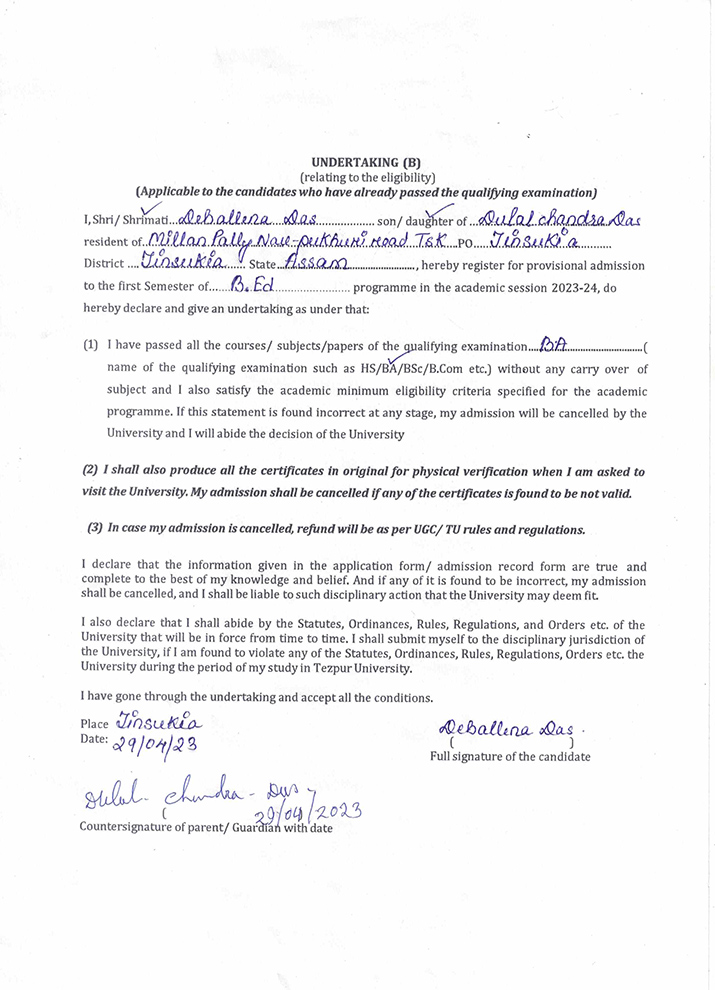 UNDERTAKING (B)
(relating to the eligibility)
(Applicable to the candidates who have already passed the qualifying examination)
I, Shri/ Shrimati...Deballena Das.................... son/ daughter of ...Dulal chandra Das
resident of...Millan Pally Naw-pukhuri road Tsk...PO.....Tinsukia..........
District ....Tinsukia...... State...Assam......................, hereby register for provisional admission
to the first Semester of......B.Ed......................... programme in the academic session 2023-24, do
hereby declare and give an undertaking as under that:
(1) I have passed all the courses/ subjects/papers of the qualifying examination....BA..............................(
name of the qualifying examination such as HS/BA/BSc/B.Com etc.) without any carry over of
subject and I also satisfy the academic minimum eligibility criteria specified for the academic
programme. If this statement is found incorrect at any stage, my admission will be cancelled by the
University and I will abide the decision of the University
(2) I shall also produce all the certificates in original for physical verification when I am asked to
visit the University. My admission shall be cancelled if any of the certificates is found to be not valid.
(3) In case my admission is cancelled, refund will be as per UGC/ TU rules and regulations.
I declare that the information given in the application form/ admission record form are true and
complete to the best of my knowledge and belief. And if any of it is found to be incorrect, my admission
shall be cancelled, and I shall be liable to such disciplinary action that the University may deem fit.
I also declare that I shall abide by the Statutes, Ordinances, Rules, Regulations, and Orders etc. of the
University that will be in force from time to time. I shall submit myself to the disciplinary jurisdiction of
the University, if I am found to violate any of the Statutes, Ordinances, Rules, Regulations, Orders etc. the
University during the period of my study in Tezpur University.
I have gone through the undertaking and accept all the conditions.
Place Tinsukia
Date: 29/04/23
Deballena Das.
( )
Full signature of the candidate
Dulal Chandra Das
( 29/04/2023
Countersignature of parent/ Guardian with date